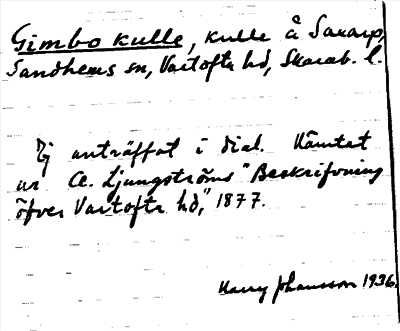 Gimbo kulle, kulle å Saxarp,
Sandhems sn, Vartofta hd, Skarab. l.
Ej anträffat i dial. Hämtat
ur C. Ljungströms "Beskrifvning
öfver Vartofta hd," 1877.
Harry Johansson 1936.